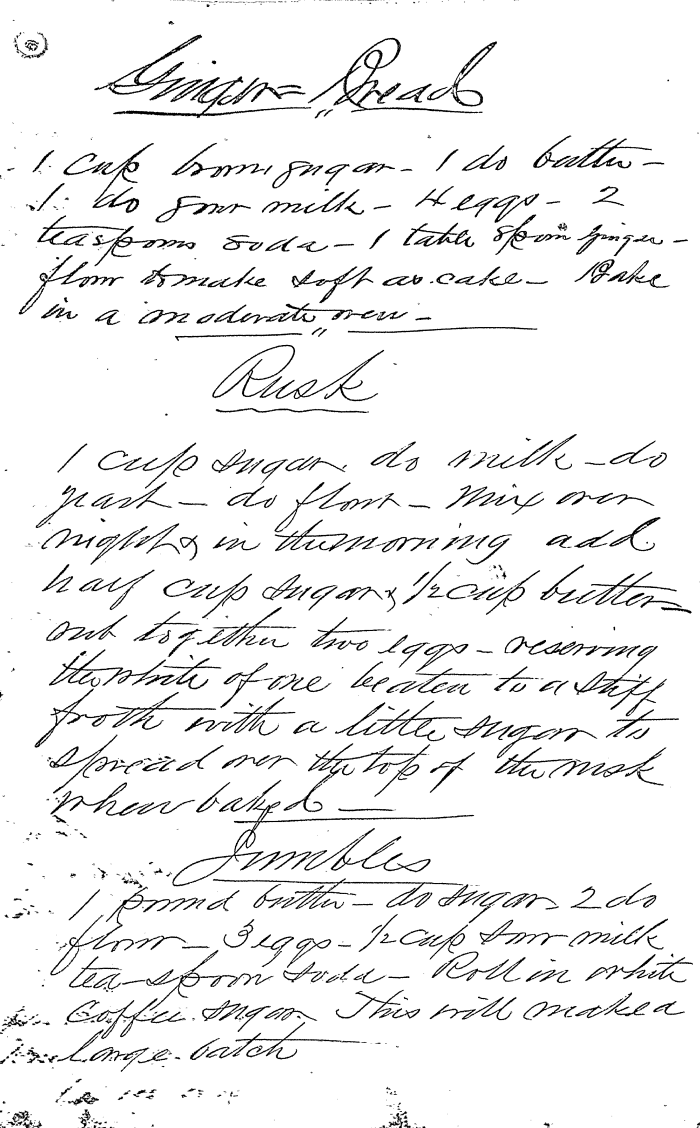 Ginger=Bread
1 cup brown sugar - 1 do butter -
1 do sour milk - 4 eggs - 2
teaspoons soda - 1 table spoon ginger -
flour to make soft as cake - Bake
in a moderate oven -
Rusk
1 cup sugar. do milk - do
yeast - do flour - Mix over
night & in the morning add
half cup sugar & 1/2 cup butter =
rub together two eggs - reserving
the white of one beaten to a stiff
froth with a little sugar to
spread over the top of the rusk
when baked -
Jumbles
1 pound butter - do sugar - 2 do
flour - 3 eggs - 1/2 cup sour milk
tea-spoon soda - Roll in white
Coffee sugar. This will make a
large batch